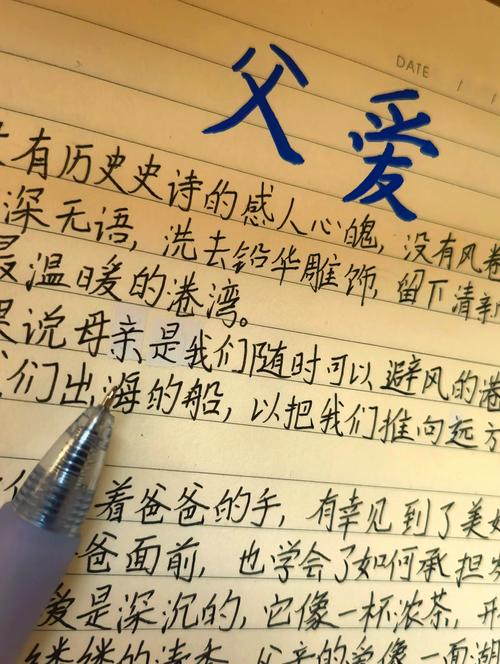 DATE / /
父爱
有历史史诗的感人心魄，没有风卷
深无语，洗去铅华雕饰，留下清新
最温暖的港湾。
果说母亲是我们随时可以避风的港
们出海的船，以把我们推向远方
着爸爸的手，有幸见到了美
爸面前，也学会了如何承担
爱是深沉的，它像一杯浓茶，
缕缕的清香，父亲的爱像一面湖